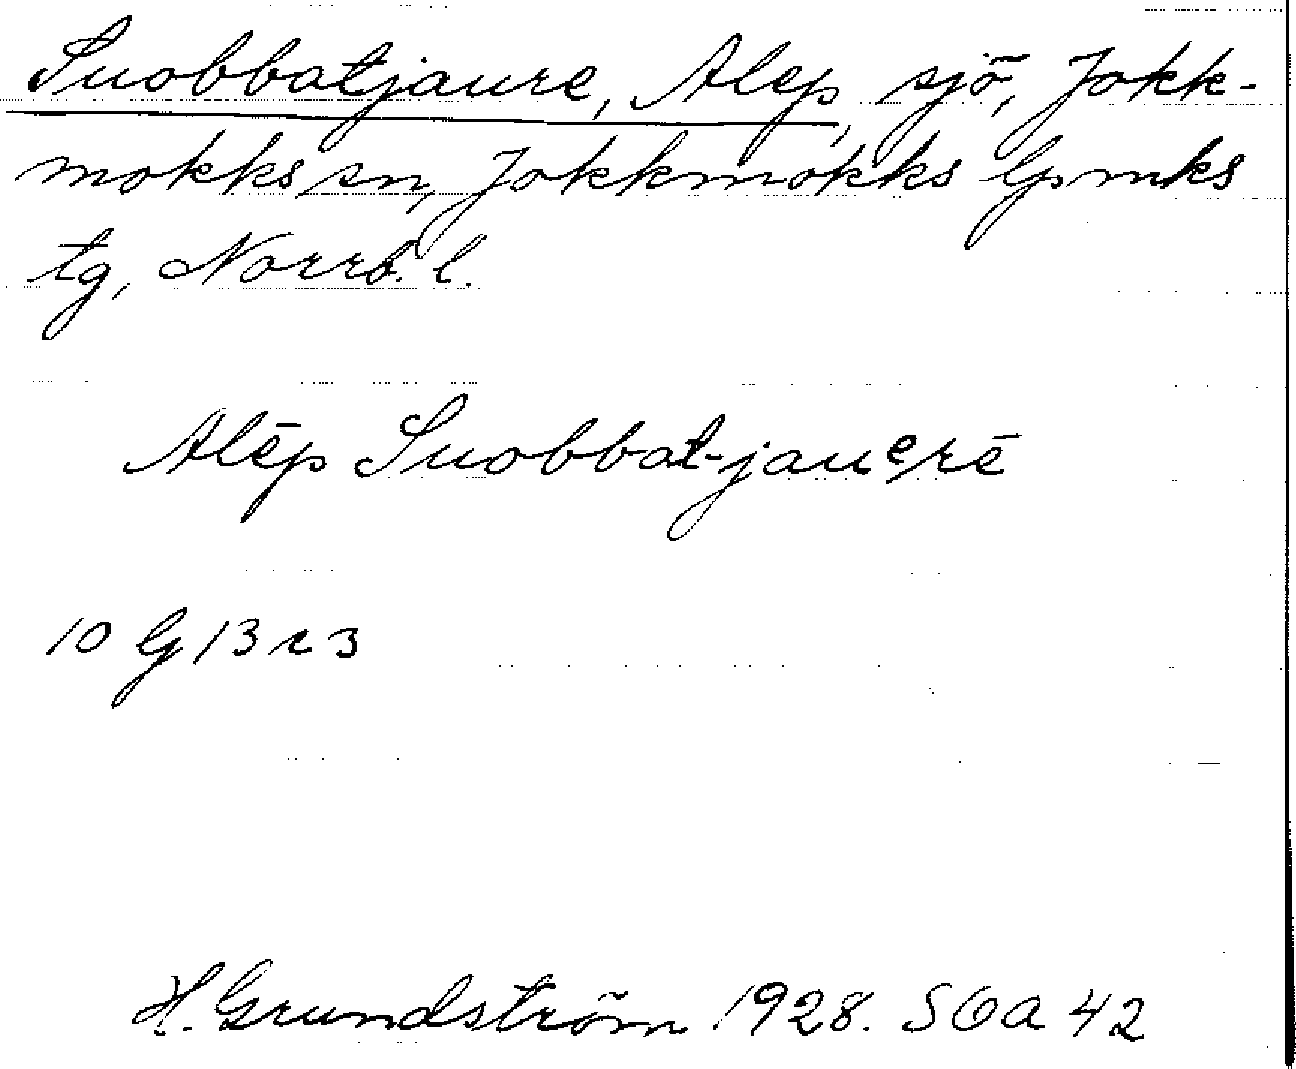 Suobbatjaure, Alep, sjö, Jokk-
mokks sn, Jokkmokks lpmks
tg, Norrb. l.
Alēp Suobbat-jauᵉrē
10 G 13 r 3
H. Grundström 1928. SOA 42